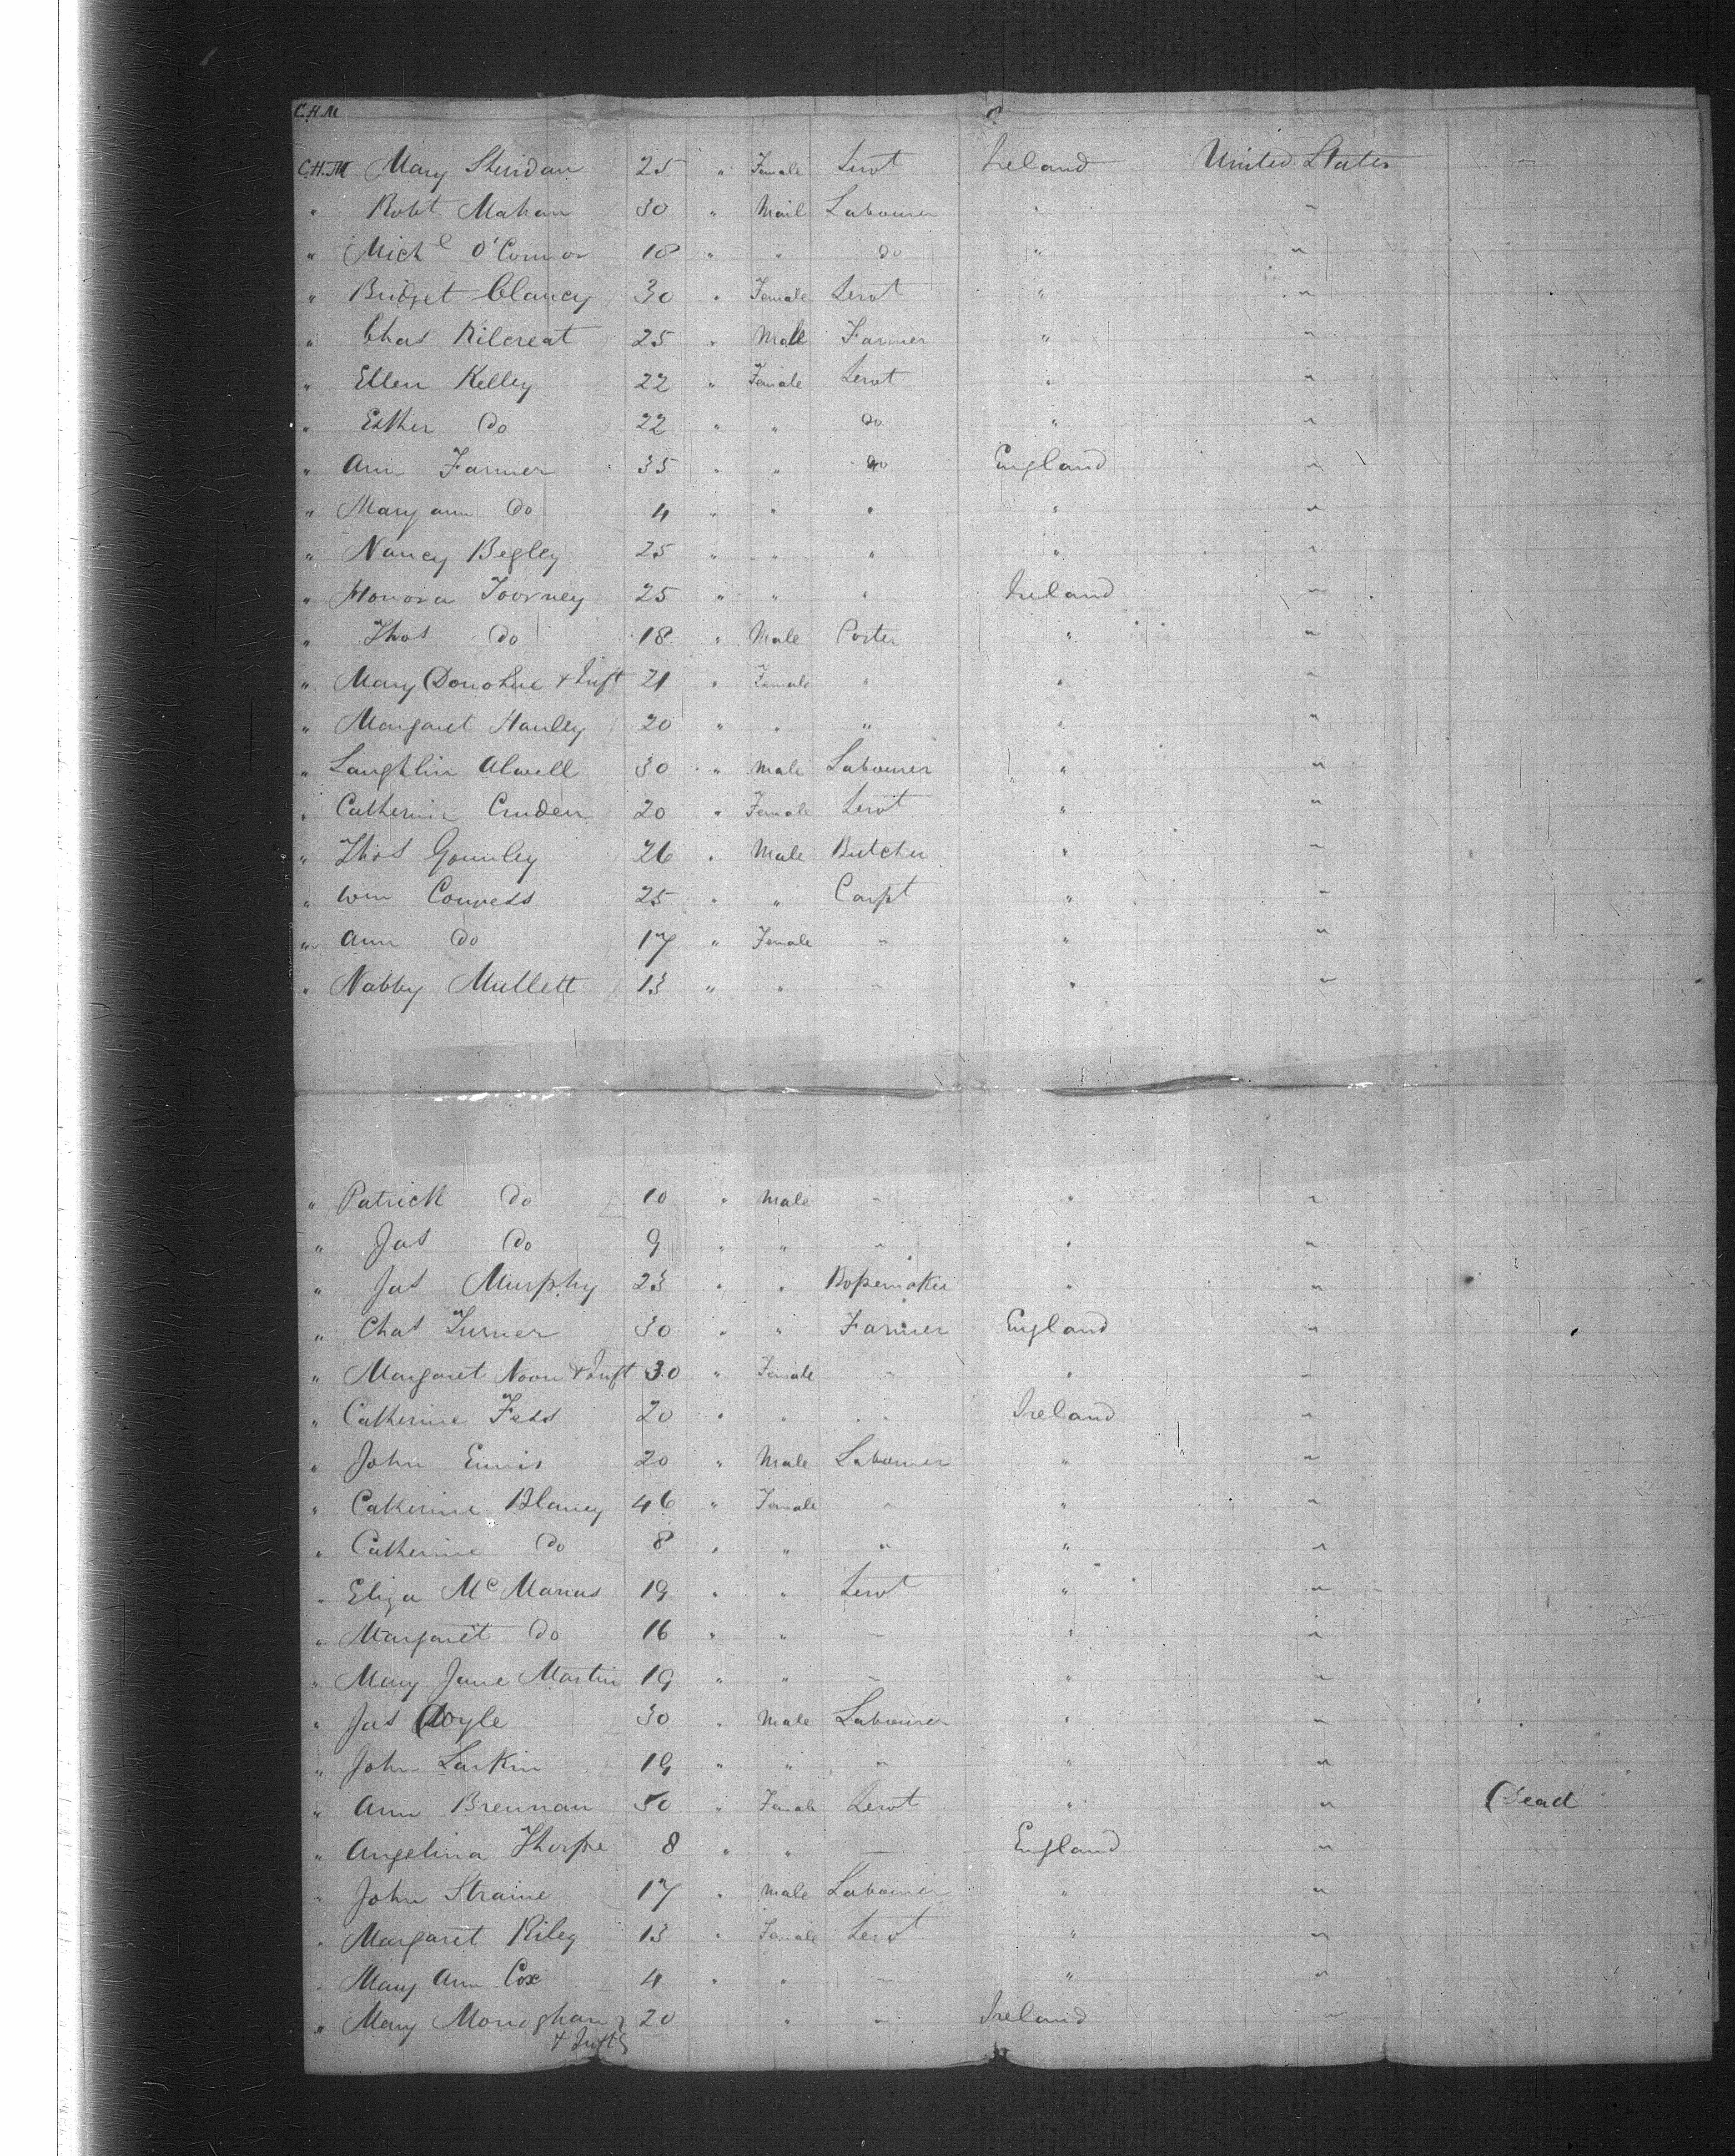 C.H.M
C.H.M Mary Sheridan 25 " Female Servt Ireland United States
" Robt Mahan 30 " Mail Labourer " "
" Michl O'Connor 18 " " do " "
" Bridget Clancy 30 " Female Servt " "
" Chas Kilcreat 25 " Male Farmer " "
" Ellen Kelley 22 " Female Servt " "
" Esther Do 22 " " do " "
" Ann Farmer 35 " " do England "
" Mary ann Do 4 " " " " "
" Nancy Begley 25 " " " " "
" Honora Toorney 25 " " " Ireland "
" Thos Do 18 " Male Porter " "
" Mary Donohue & Inft 21 " Female " " "
" Margaret Hanley 20 " " " " "
" Laughlin Alwell 30 " Male Labourer " "
" Catherine Cruden 20 " Female Servt " "
" Thos Gourley 26 " Male Butcher " "
" Wm Convess 25 " " Carpt " "
" Ann Do 17 " Female " " "
" Nabby Mullett 13 " " " " "
" Patrick Do 10 " Male " " "
" Jas Do 9 " " " " "
" Jas Murphy 23 " " Ropemaker " "
" Chas Turner 30 " " Farmer England "
" Margaret Noon & Inft 30 " Female " " "
" Catherine Fess 20 " " " Ireland "
" John Ennis 20 " Male Labourer " "
" Catherine Blaney 46 " Female " " "
" Catherine Do 8 " " " " "
" Eliza McManus 19 " " Servt " "
" Margaret Do 16 " " " " "
" Mary Jane Martin 19 " " " " "
" Jas Doyle 30 " Male Labourer " "
" John Larkin 19 " " " " "
" Ann Brennan 50 " Female Servt " " Dead
" Angelina Thorpe 8 " " — England "
" John Straine 17 " Male Labourer " "
" Margaret Riley 13 " Female Servt " "
" Mary Ann Cox 4 " " " " "
" Mary Monoghan 20 " " Ireland "
& Inft